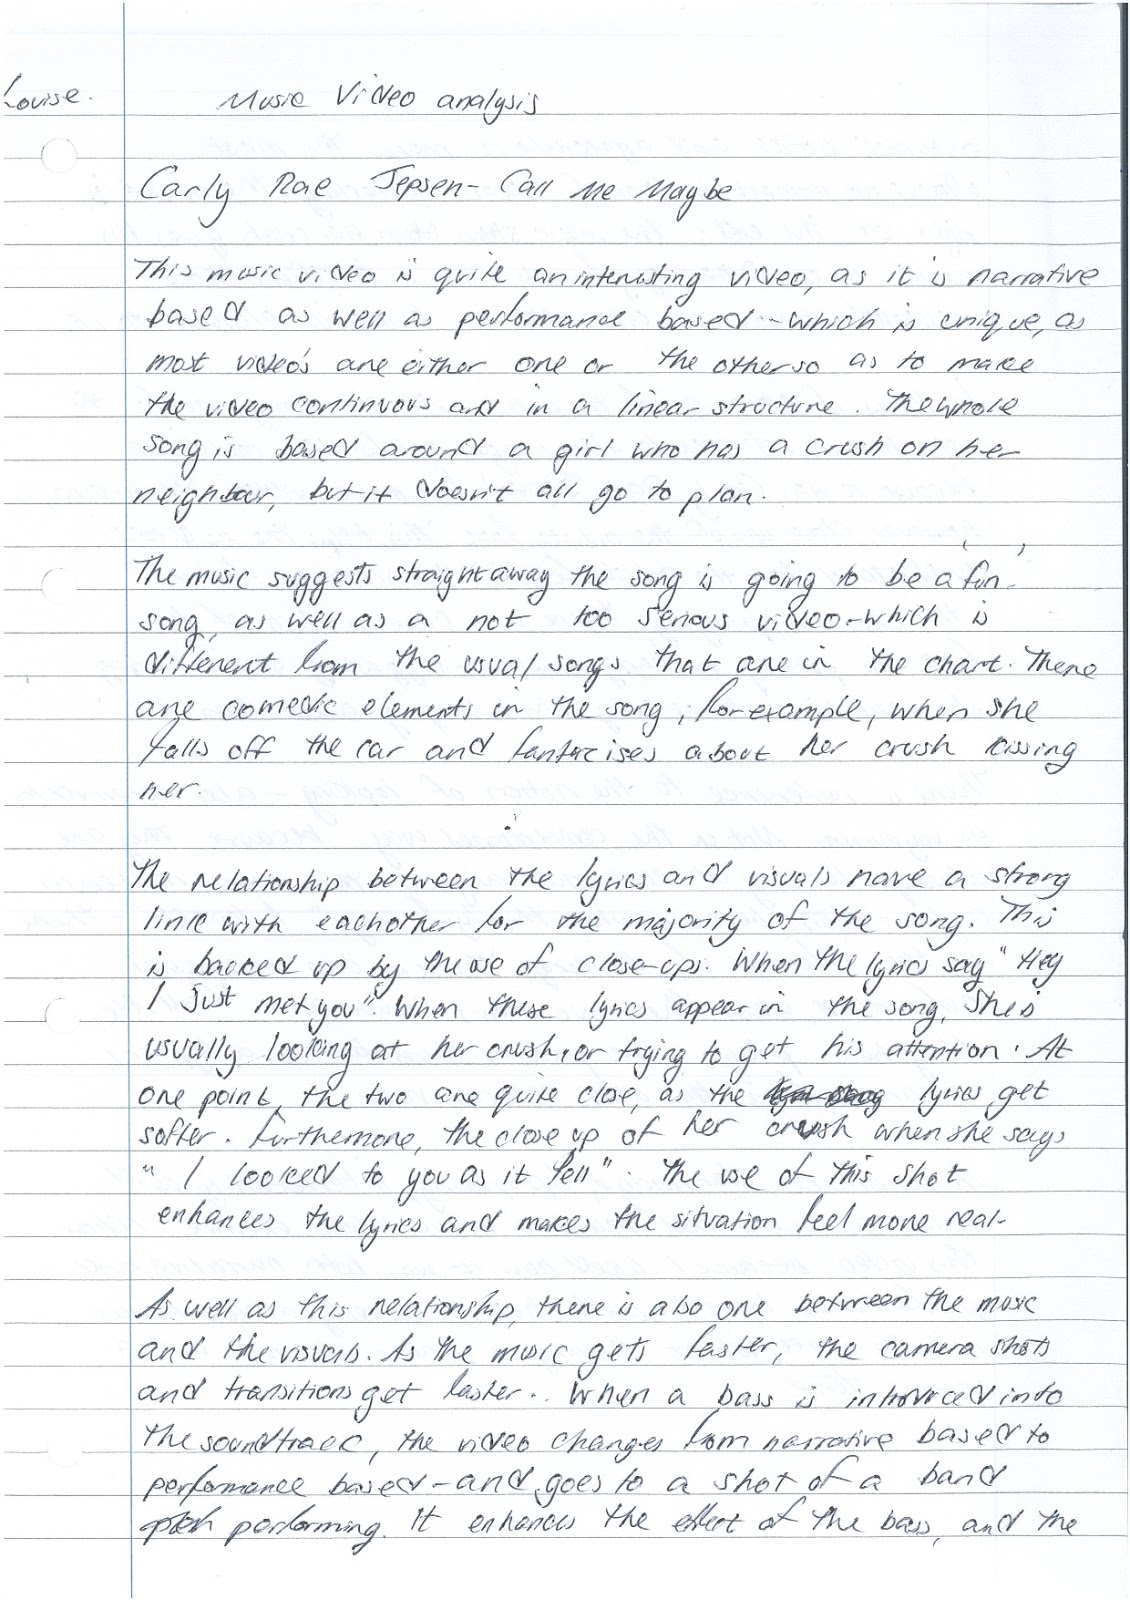 Louise.
Music Video analysis
Carly Rae Jepsen - Call Me Maybe
This music video is quite an interesting video, as it is narrative
based as well as performance based - which is unique, as
most video's are either one or the other so as to make
the video continuous and in a linear structure. The whole
song is based around a girl who has a crush on her
neighbour, but it doesn't all go to plan.
The music suggests straight away the song is going to be a 'fun'
song, as well as a not too serious video - which is
different from the usual songs that are in the chart. There
are comedic elements in the song, for example, when she
falls off the car and fantacises about her crush kissing
her.
The relationship between the lyrics and visuals have a strong
link with eachother for the majority of the song. This
is backed up by the use of close-ups. When the lyrics say "Hey
I just met you". When these lyrics appear in the song, she is
usually looking at her crush, or trying to get his attention. At
one point, the two are quite close, as the lyrics get
softer. Furthermore, the close up of her crush when she says
" I looked to you as it fell". The use of this shot
enhances the lyrics and makes the situation feel more real.
As well as this relationship, there is also one between the music
and the visuals. As the music gets faster, the camera shots
and transitions get faster. When a bass is introduced into
the soundtrack, the video changes from narrative based to
performance based - and goes to a shot of a band
performing. It enhances the effect of the bass, and the